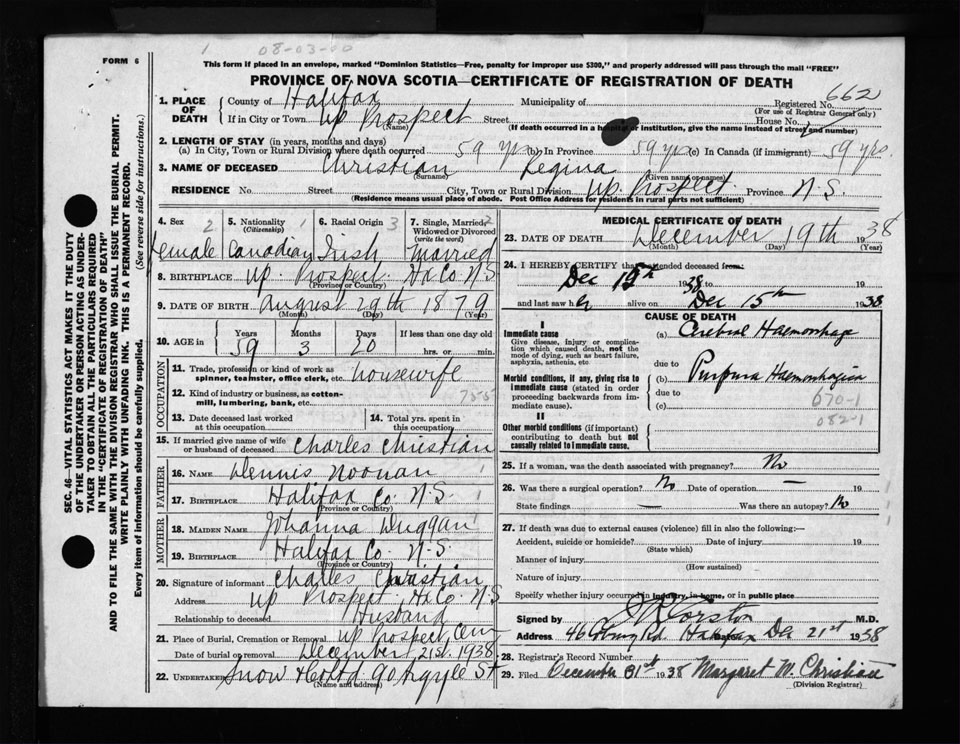 1 08-03-00
FORM 6
This form if placed in an envelope, marked "Dominion Statistics—Free, penalty for improper use $300," and properly addressed will pass through the mail "FREE"
PROVINCE OF NOVA SCOTIA—CERTIFICATE OF REGISTRATION OF DEATH
SEC. 46—VITAL STATISTICS ACT MAKES IT THE DUTY
OF THE UNDERTAKER OR PERSON ACTING AS UNDER-
TAKER TO OBTAIN ALL THE PARTICULARS REQUIRED
IN THE "CERTIFICATE OF REGISTRATION OF DEATH"
AND TO FILE THE SAME WITH THE DIVISION REGISTRAR WHO SHALL ISSUE THE BURIAL PERMIT.
WRITE PLAINLY WITH UNFADING INK. THIS IS A PERMANENT RECORD.
Every item of information should be carefully supplied. (See reverse side for instructions.)
1. PLACE OF DEATH County of Halifax Municipality of Registered No. 662
(For use of Registrar General only)
If in City or Town Up Prospect Street House No.
(Name) (If death occurred in a hospital or institution, give the name instead of street and number)
2. LENGTH OF STAY (in years, months and days)
(a) In City, Town or Rural Division where death occurred 59 yrs (b) In Province 59 yrs (c) In Canada (if immigrant) 59 yrs.
3. NAME OF DECEASED Christian Regina
(Surname) (Given name or names)
RESIDENCE No. Street City, Town or Rural Division Up. Prospect. Province N.S.
(Residence means usual place of abode. Post Office Address for residents in rural parts not sufficient)
4. Sex 2 5. Nationality 1 6. Racial Origin 3 7. Single, Married, 2
(Citizenship) Widowed or Divorced
(write the word)
Female Canadian Irish Married
8. BIRTHPLACE Up. Prospect. Hx Co. N.S
(Province or Country)
9. DATE OF BIRTH August 29th 1879
(Month) (Day) (Year)
10. AGE in Years Months Days If less than one day old
59 3 20 hrs. or min.
OCCUPATION
11. Trade, profession or kind of work as
spinner, teamster, office clerk, etc. housewife
12. Kind of industry or business, as cotton-
mill, lumbering, bank, etc. 755
13. Date deceased last worked 14. Total yrs. spent in
at this occupation this occupation
15. If married give name of wife
or husband of deceased Charles Christian
FATHER
16. NAME Dennis Noonan
17. BIRTHPLACE Halifax Co. N.S. 1
(Province or Country)
MOTHER
18. MAIDEN NAME Johanna Duggan
19. BIRTHPLACE Halifax Co. N.S.
(Province or Country)
20. Signature of informant Charles Christian
Address Up Prospect. Hx Co. N.S
Relationship to deceased Husband
21. Place of Burial, Cremation or Removal Up Prospect Cem
Date of burial or removal December 21st. 1938.
22. UNDERTAKER Snow & Co Ltd 90 Argyle St
(Name and address)
MEDICAL CERTIFICATE OF DEATH
23. DATE OF DEATH December 19th 1938
(Month) (Day) (Year)
24. I HEREBY CERTIFY that I attended deceased from:
Dec 15th 1938 to 19
and last saw her alive on Dec 15th 1938
CAUSE OF DEATH
I
Immediate cause
Give disease, injury or complica-
tion which caused death, not the
mode of dying, such as heart failure,
asphyxia, asthenia, etc.
(a) Cerebral Haemorrhage
due to
Morbid conditions, if any, giving rise to
immediate cause (stated in order
proceeding backwards from im-
mediate cause).
(b) Purpura Haemorrhagica
due to
(c) 670-1
082-1
II
Other morbid conditions (if important)
contributing to death but not
causally related to immediate cause.
25. If a woman, was the death associated with pregnancy? No
26. Was there a surgical operation? No Date of operation — 19
State findings — Was there an autopsy? No
27. If death was due to external causes (violence) fill in also the following:—
Accident, suicide or homicide? Date of injury 19
(State which)
Manner of injury
(How sustained)
Nature of injury
Specify whether injury occurred in industry, in home, or in public place
Signed by J R Corston M.D.
Address 46 Coburg Rd. Halifax Dec 21st 1938
28. Registrar's Record Number
29. Filed December 31st 1938 Margaret M. Christian
(Division Registrar)